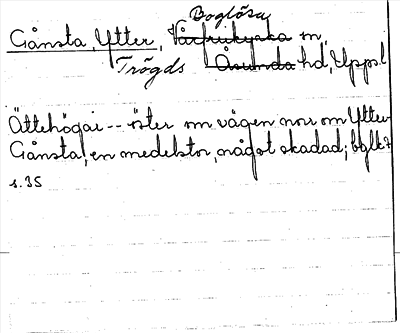 Boglösa
Gånsta, Ytter, Vårfrukyrka sn,
Trögds Åsunda hd, Uppsl
Ättehögar -- öster om vägen norr om Ytter
Gånsta, en medelstor, något skadad; bglk 7
s. 35